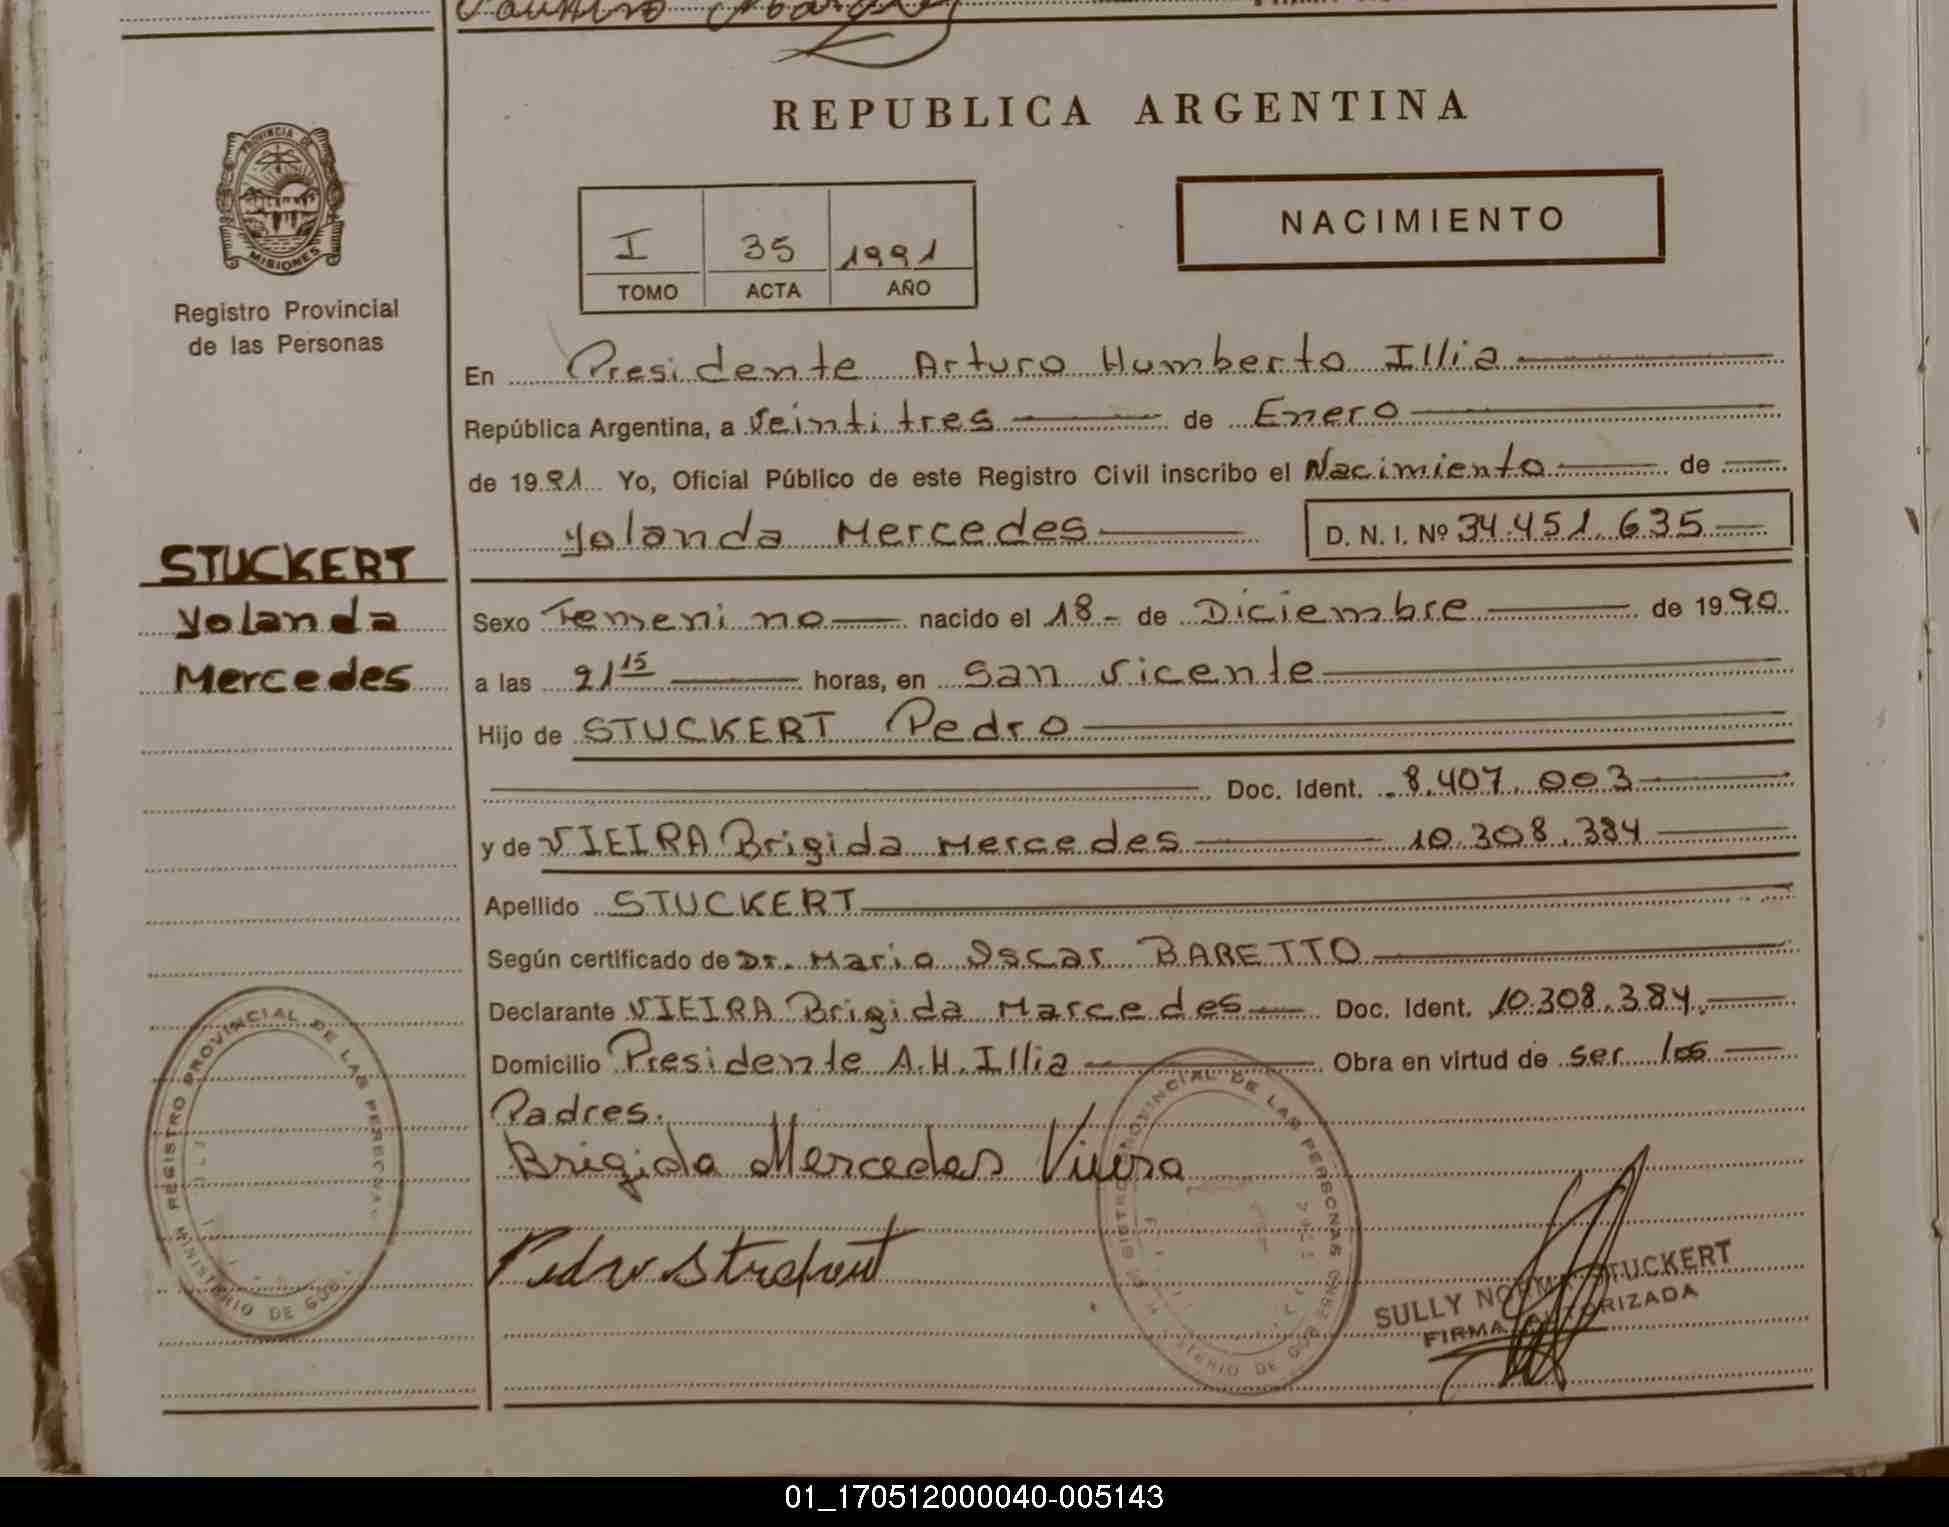 REPUBLICA ARGENTINA
PROVINCIA DE
MISIONES
Registro Provincial
de las Personas
I 35 1991
TOMO ACTA AÑO
NACIMIENTO
En Presidente Arturo Humberto Illia
República Argentina, a Veintitres de Enero
de 1991 Yo, Oficial Público de este Registro Civil inscribo el Nacimiento de
Yolanda Mercedes D. N. I. Nº 34.451.635
STUCKERT
Yolanda
Mercedes
Sexo Femenino nacido el 18 - de Diciembre de 1990
a las 21 15 horas, en San Vicente
Hijo de STUCKERT Pedro
Doc. Ident. 8.407.003
y de VIEIRA Brigida Mercedes 10.308.384
Apellido STUCKERT
Según certificado de Dr. Mario Oscar BARETTO
Declarante VIEIRA Brigida Marcedes Doc. Ident. 10.308.384
Domicilio Presidente A.H. Illia Obra en virtud de ser los
Padres.
Brigida Mercedes Vieira
Pedro
REGISTRO PROVINCIAL DE LAS PERSONAS
MINISTERIO DE GOB
REGISTRO PROVINCIAL DE LAS PERSONAS
MINISTERIO DE GOB
SULLY NORMA STUCKERT
FIRMA AUTORIZADA
01_170512000040-005143